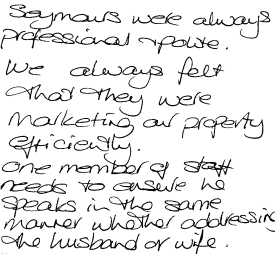 Seymours were always
professional + polite.
We always felt
that they were
marketing our property
efficiently.
One member of staff
needs to ensure he
speaks in the same
manner whether addressing
the husband or wife.